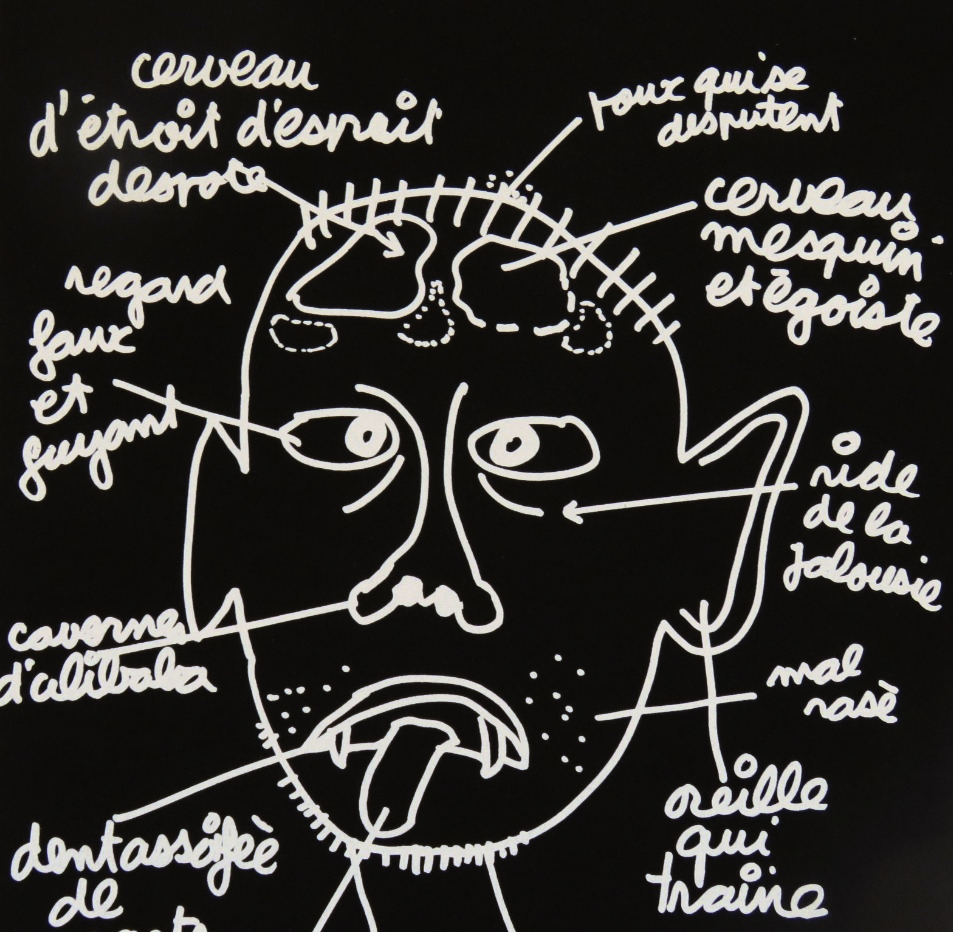 cerveau
d'étroit d'esprit
despote
poux qui se
disputent
cerveau
mesquin
et égoïste
regard
faux
et
fuyant
ride
de la
jalousie
caverne
d'alibaba
mal
rasè
oreille
qui
traine
dent
de